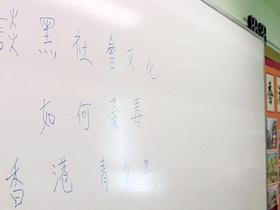 談黑社會文化
如何荼毒
香港青少年